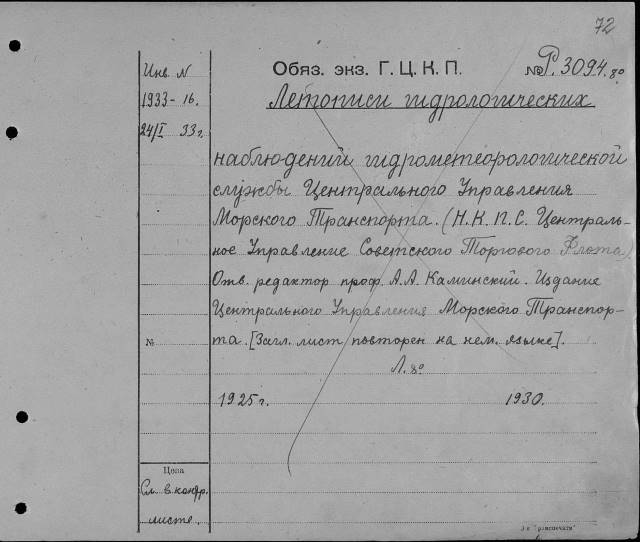 72
Инв. N
Обяз. экз. Г. Ц. К. П.
№ Р.3094.8º
1933-16.
Летописи гидрологических
24/I 33 г.
наблюдений гидрометеорологической
службы Центрального Управления
Морского Транспорта. (Н.К.П.С. Централь-
ное Управление Советского Торгового Флота)
Отв. редактор проф. А.А. Каминский. Издание
Центрального Управления Морского Транспор-
№
та. [Загл. лист повторен на нем. языке].
Л. 8º
1925 г. 1930.
Цена
См. в контр.
листе.